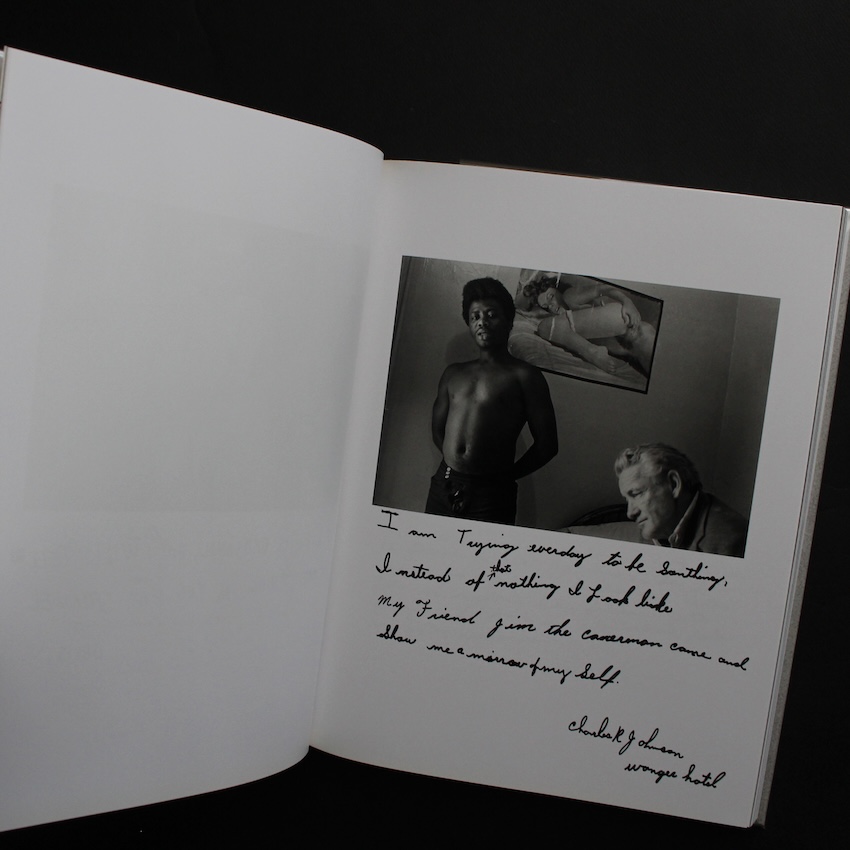 I am Trying everday to be Somthing,
Instead of that nothing I Look like
My Friend Jim the camerman came and
Show me a mirrow of my Self.
Charles R Johnson
wongee hotel